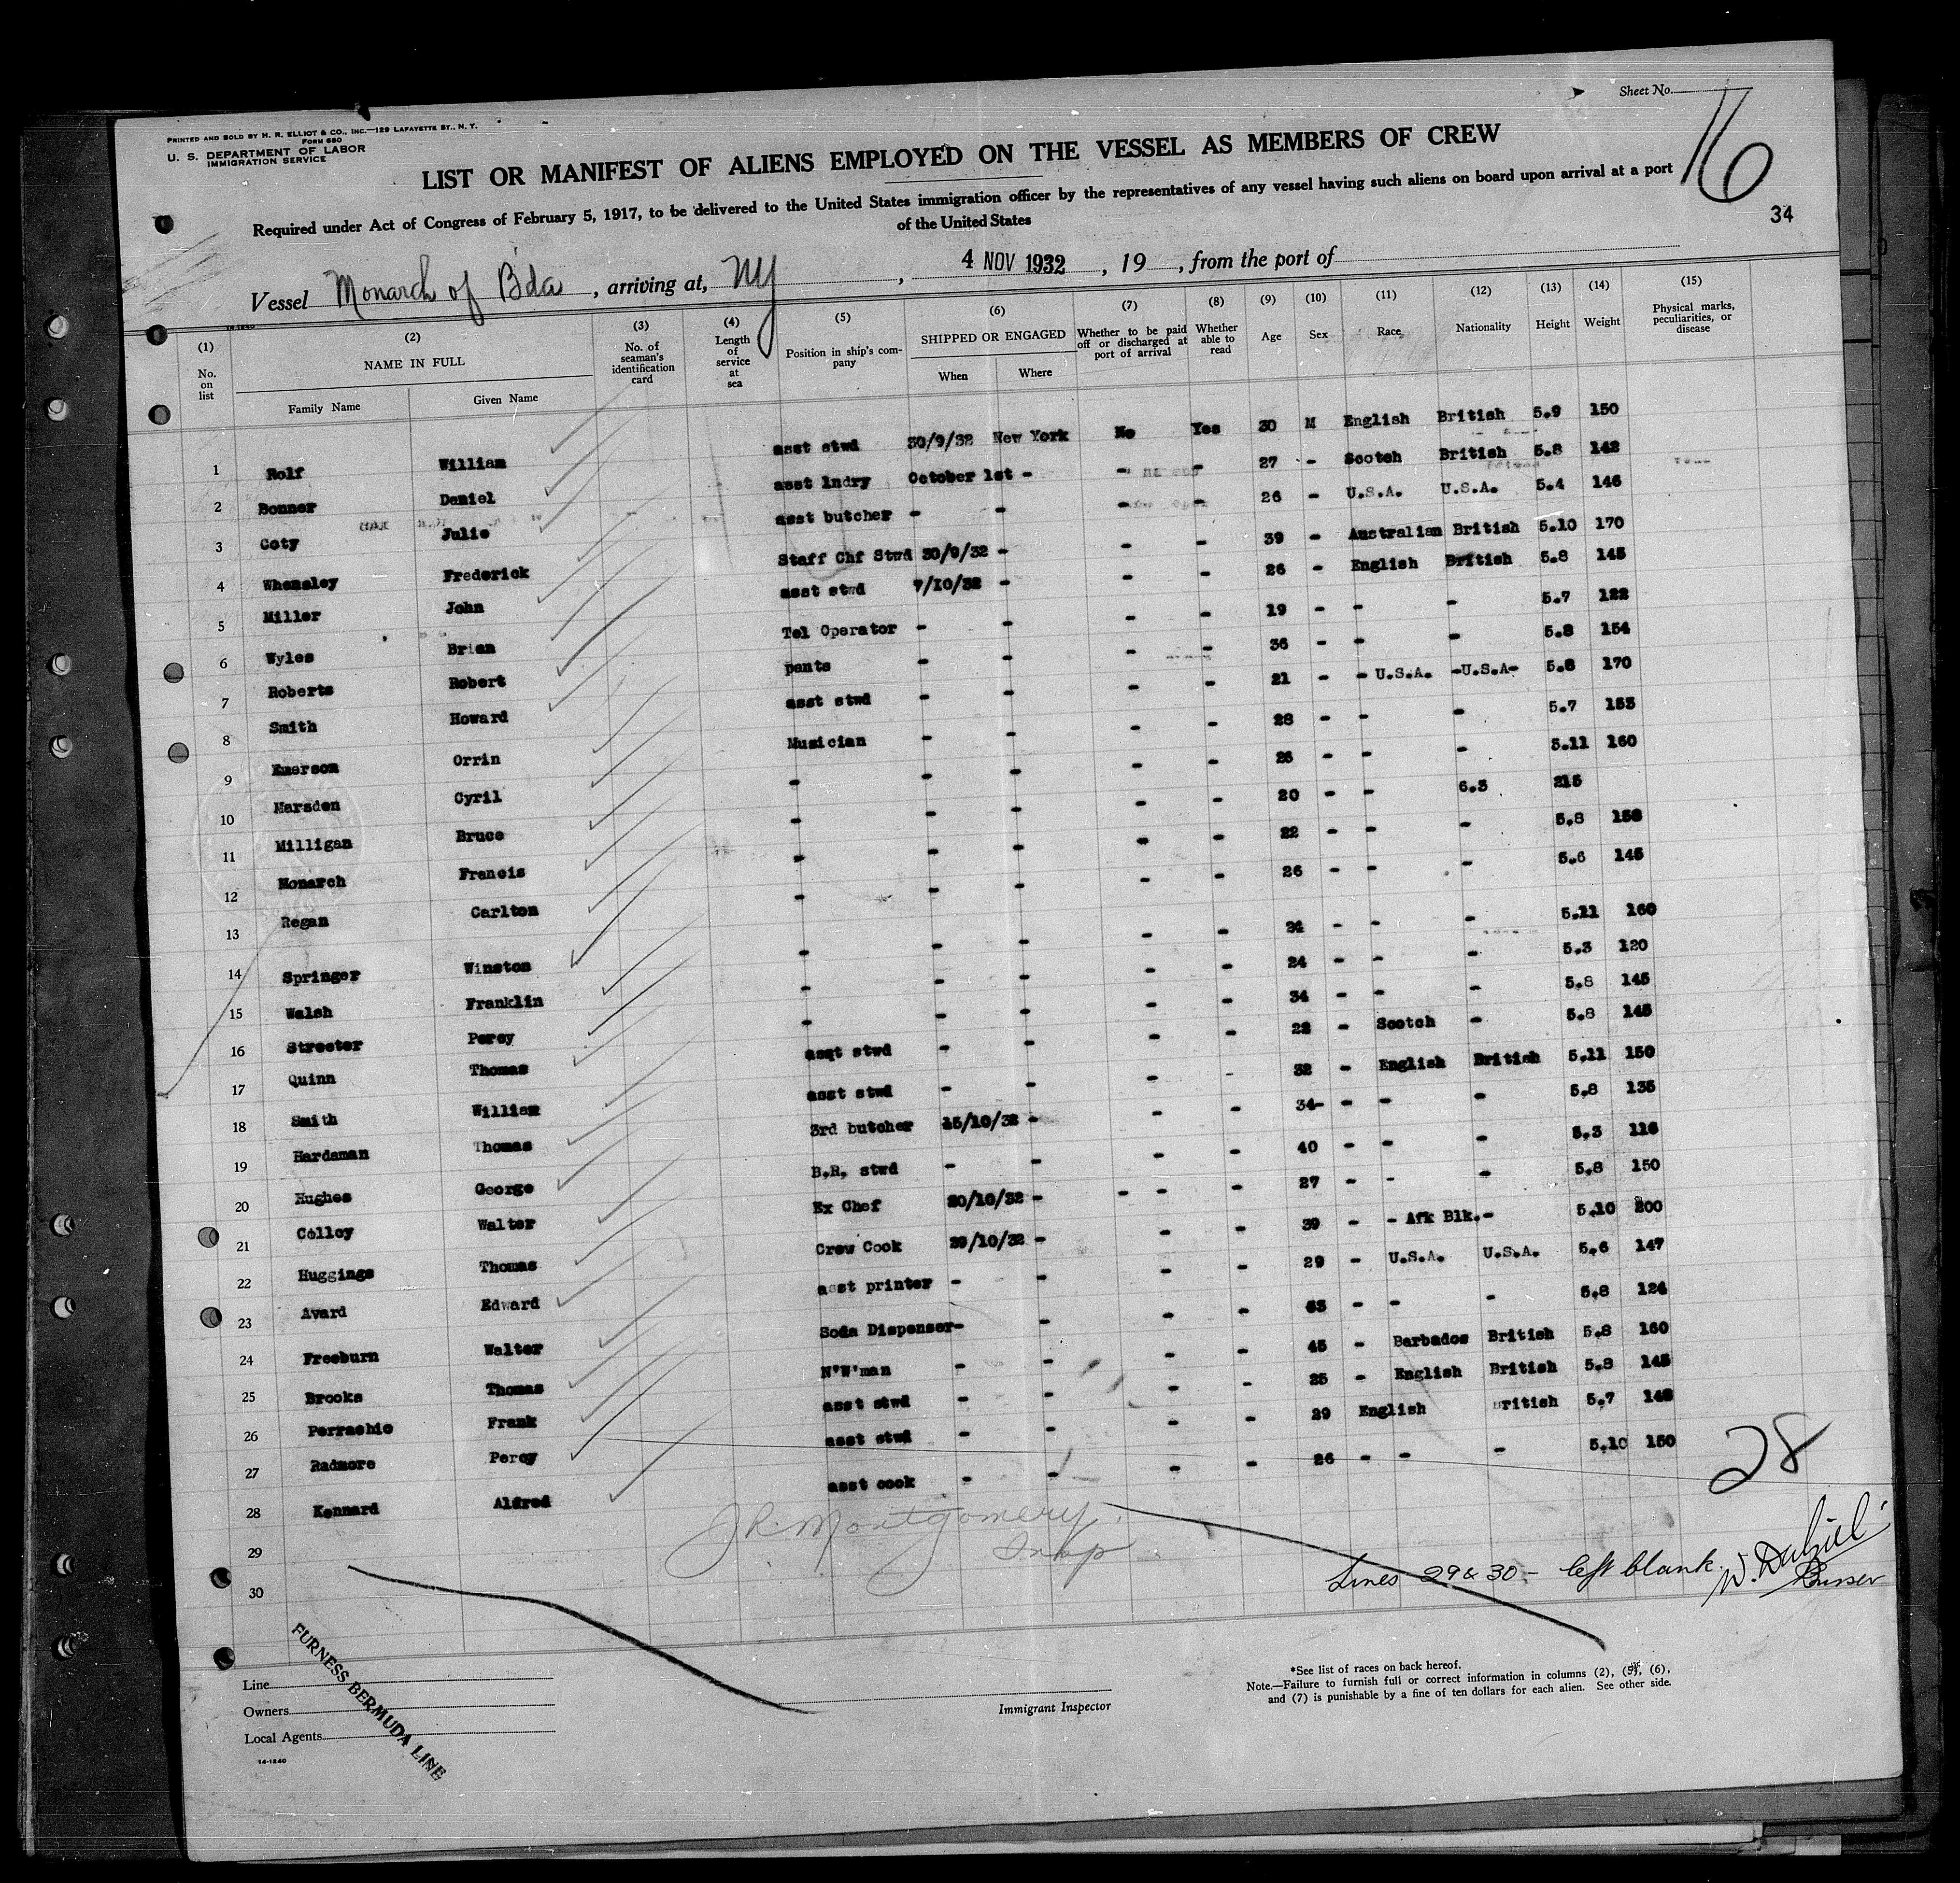 Sheet No. 16
PRINTED AND SOLD BY H. R. ELLIOT & CO., INC.—129 LAFAYETTE ST., N. Y.
FORM 680
U. S. DEPARTMENT OF LABOR
IMMIGRATION SERVICE
LIST OR MANIFEST OF ALIENS EMPLOYED ON THE VESSEL AS MEMBERS OF CREW
Required under Act of Congress of February 5, 1917, to be delivered to the United States immigration officer by the representatives of any vessel having such aliens on board upon arrival at a port
of the United States
34
Vessel Monarch of B'da, arriving at, NY, 4 NOV 1932, 19, from the port of
(1) (2) (3) (4) (5) (6) (7) (8) (9) (10) (11) (12) (13) (14) (15)
No. on list NAME IN FULL No. of seaman's identification card Length of service at sea Position in ship's company SHIPPED OR ENGAGED Whether to be paid off or discharged at port of arrival Whether able to read Age Sex Race Nationality Height Weight Physical marks, peculiarities, or disease
Family Name Given Name When Where
1 Rolf William asst stwd 30/9/32 New York No Yes 30 M English British 5.9 150
2 Bonner Daniel asst lndry October 1st - - - 27 - Scotch British 5.8 142
3 Coty Julio asst butcher - - - - 26 - U.S.A. U.S.A. 5.4 146
4 Whemsley Frederick Staff Chf Stwd 30/9/32 - - - 39 - Australian British 5.10 170
5 Miller John asst stwd 7/10/32 - - - 26 - English British 5.8 145
6 Wyles Brian Tel Operator - - - - 19 - - - 5.7 122
7 Roberts Robert pants - - - - 36 - - - 5.8 154
8 Smith Howard asst stwd - - - - 21 - - U.S.A. -U.S.A- 5.8 170
9 Emerson Orrin Musician - - - - 28 - - - 5.7 153
10 Marsden Cyril - - - - - 26 - - - 5.11 160
11 Milligan Bruce - - - - - 20 - - 6.3 215
12 Monarch Francis - - - - - 22 - - - 5.8 158
13 Regan Carlton - - - - - 26 - - - 5.6 145
14 Springer Winston - - - - - 24 - - - 5.11 160
15 Walsh Franklin - - - - - 24 - - - 5.3 120
16 Streeter Percy - - - - - 34 - - - 5.8 145
17 Quinn Thomas asqt stwd - - - - 22 - Scotch - 5.8 145
18 Smith William asst stwd - - - - 32 - English British 5.11 150
19 Hardaman Thomas 3rd butcher 15/10/32 - - - 34- - - - 5.8 135
20 Hughes George B.R. stwd - - - - 40 - - - 5.3 116
21 Colley Walter Ex Chef 20/10/32 - - - - 27 - - - 5.8 150
22 Huggings Thomas Crew Cook 29/10/32 - - - 39 - - Afk Blk.- 5.10 200
23 Avard Edward asst printer - - - - 29 - U.S.A. U.S.A. 5.6 147
24 Freeburn Walter Soda Dispenser- - - - 63 - - - 5.8 124
25 Brooks Thomas N'W'man - - - - 45 - Barbados British 5.8 160
26 Perrachio Frank asst stwd - - - - 25 - English British 5.8 145
27 Radmore Percy asst stwd - - - - 29 English British 5.7 148
28 Kennard Alfred asst cook - - - - 26 - - - 5.10 150
28
29
30
J R. Montgomery.
Insp
Lines 29 & 30 - left blank. W. Dalziel
Purser
FURNESS BERMUDA LINE
Line
Owners
Local Agents
14-1240
Immigrant Inspector
*See list of races on back hereof.
Note.—Failure to furnish full or correct information in columns (2), (5), (6),
and (7) is punishable by a fine of ten dollars for each alien. See other side.